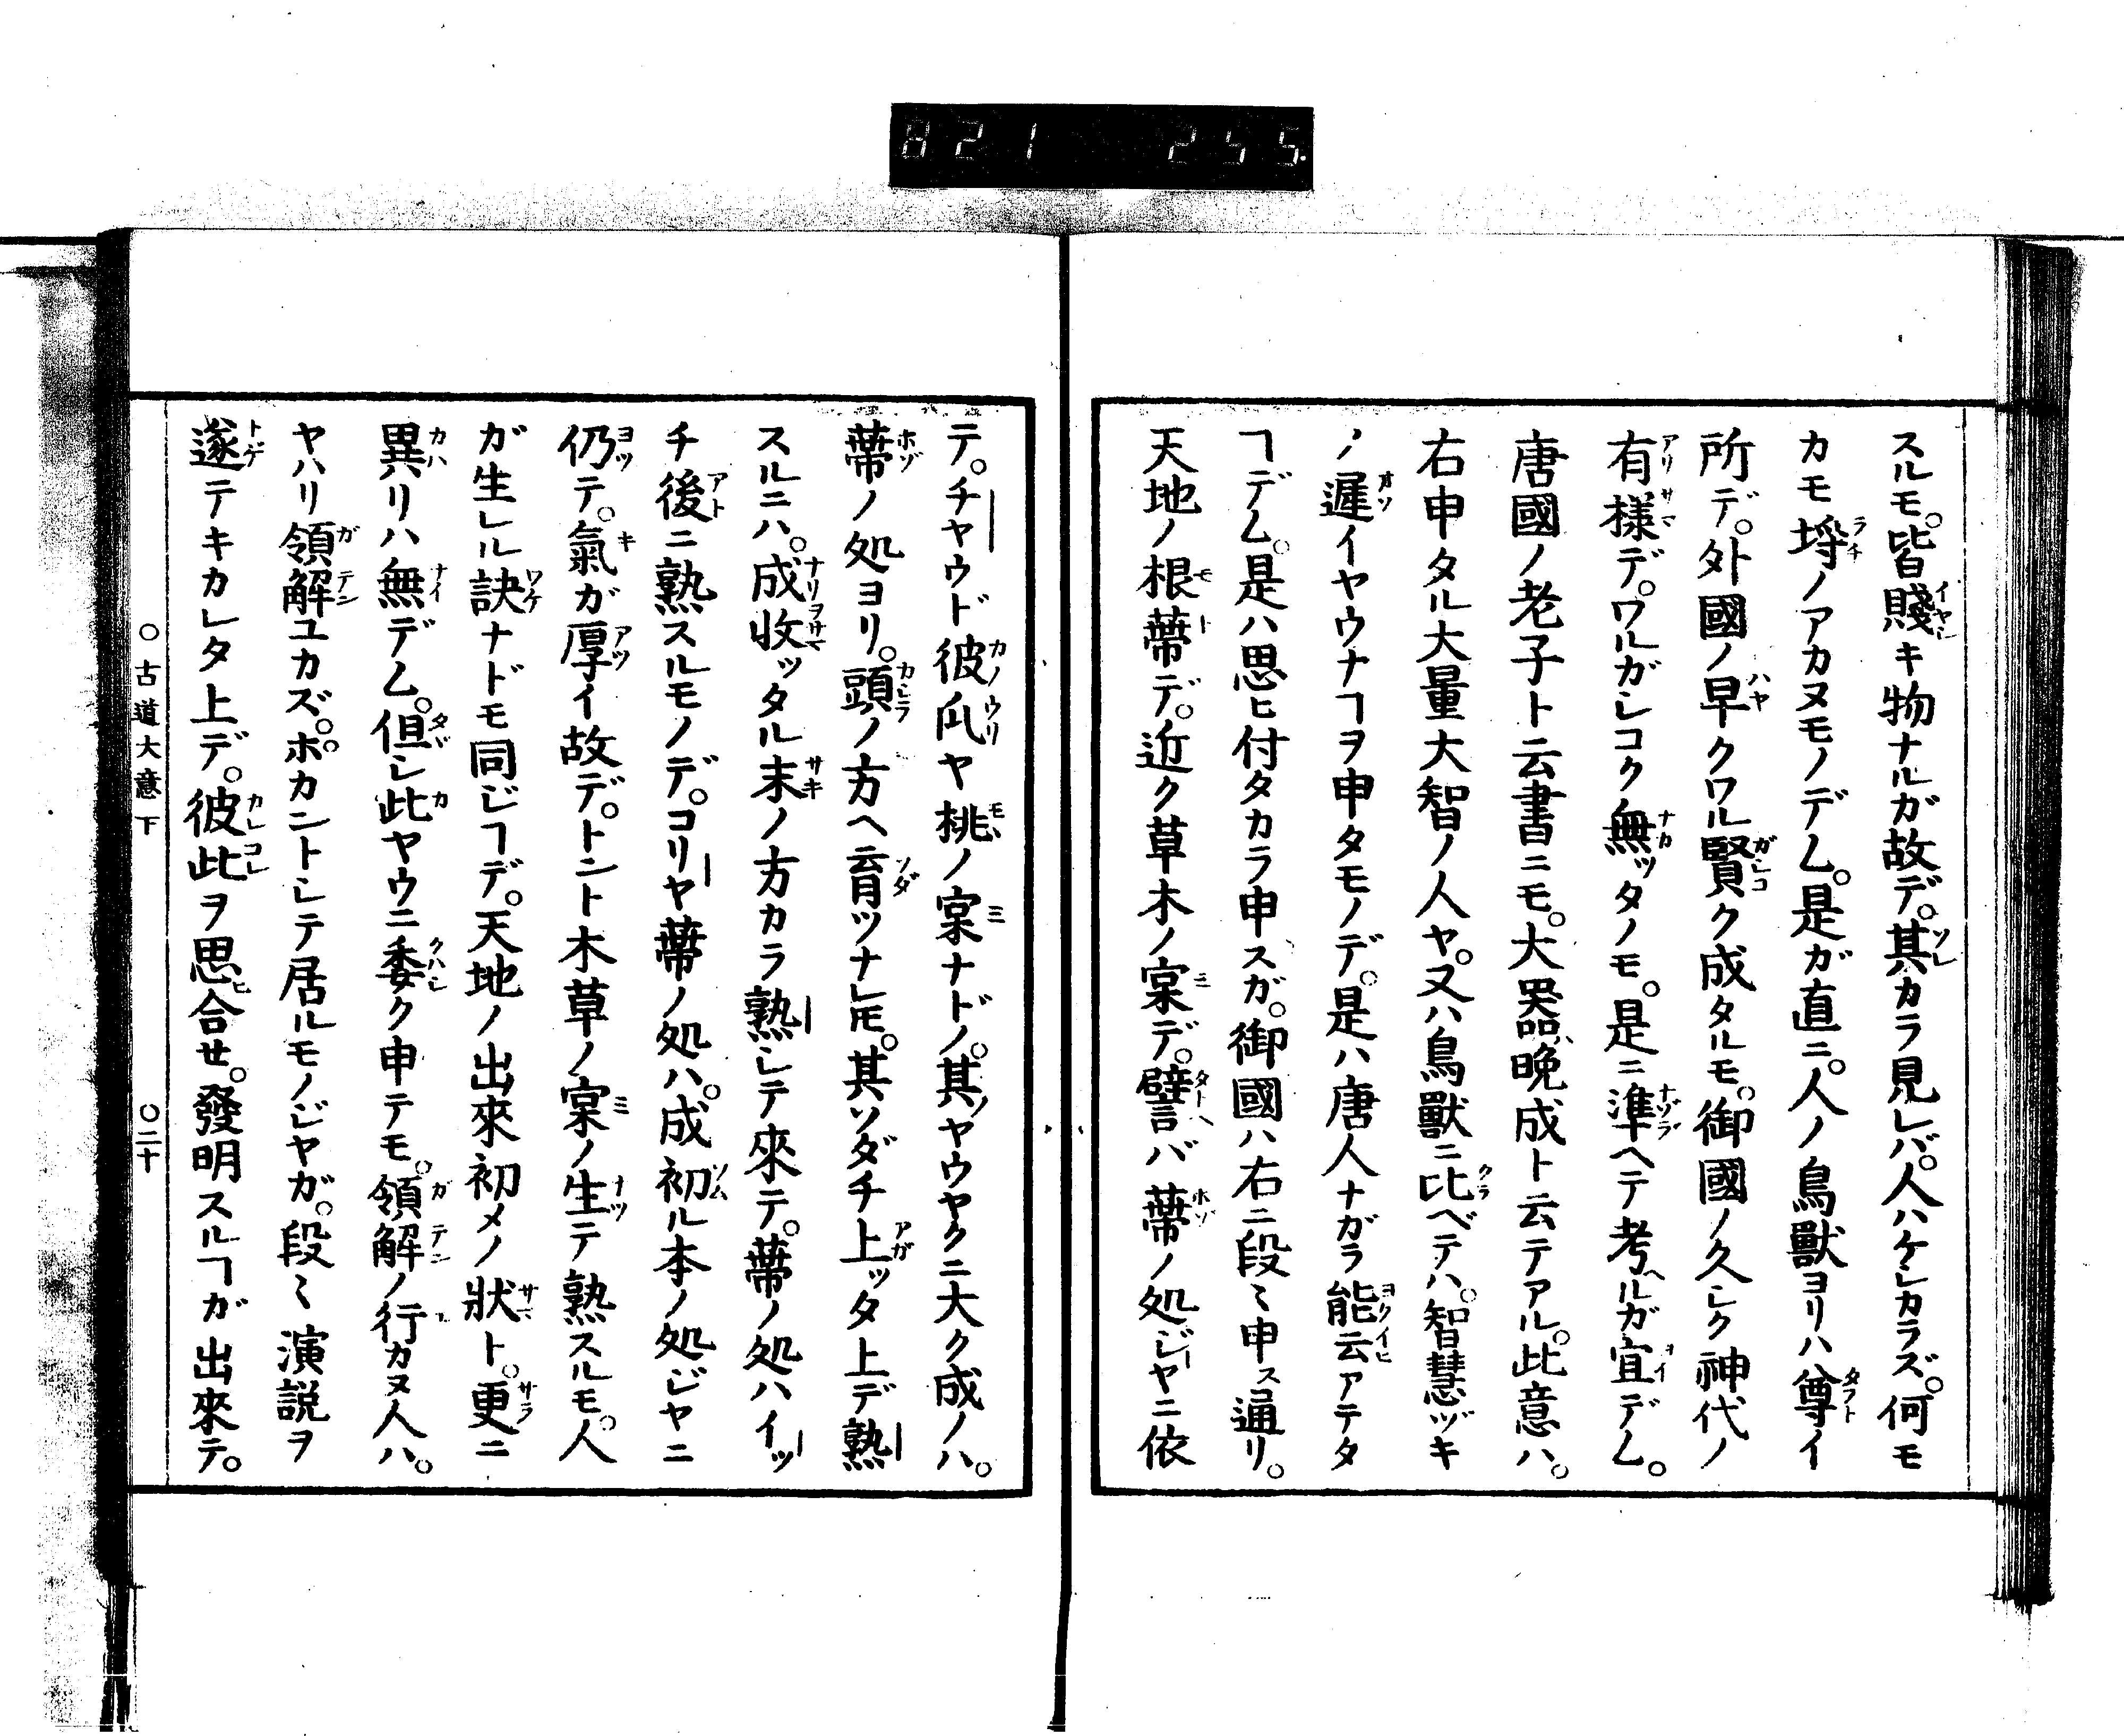 821 255.
スルモ。皆賤キ物ナルガ故デ。其カラ見レバ。人ハケレカラズ。何モ
カモ埒ノアカヌモノデム。是ガ直ニ。人ノ鳥獸ヨリハ尊イ
所デ。外國ノ早クワル賢ク成タルモ。御國ノ久シク神代ノ
有様デ。ワルガシコク無ッタノモ。是ニ準ヘテ考ヘルガ宜デム。
唐國ノ老子ト云書ニモ。大器晩成ト云テアル。此意ハ。
右申タル大量大智ノ人ヤ。又ハ鳥獸ニ比ベテハ。智慧ヅキ
ノ遲イヤウナヿヲ申タモノデ。是ハ唐人ナガラ能云アテタ
ヿデム。是ハ思ヒ付タカラ申スガ。御國ハ右ニ段〻申ス通リ。
天地ノ根蔕デ。近ク草木ノ菓デ。譬ヘバ蔕ノ処ジヤニ依
テ。チヤウド彼瓜ヤ桃ノ菓ナドノ。其ノヤウヤクニ大ク成ノハ。
蔕ノ処ヨリ。頭ノ方ヘ育ツナレ𪜈。其ソダチ上ッタ上デ熟
スルニハ。成收ッタル末ノ方カラ熟シテ來テ。蔕ノ処ハイッ
チ後ニ熟スルモノデ。コリヤ蔕ノ処ハ。成初ル本ノ処ジヤニ
仍テ。氣ガ厚イ故デ。トント木草ノ菓ノ生テ熟スルモ。人
ガ生レル訣ナドモ同ジヿデ。天地ノ出來初メノ狀ト。更ニ
異リハ無デム。但シ此ヤウニ委ク申テモ。領解ノ行カヌ人ハ。
ヤハリ領解ユカズ。ポカントシテ居ルモノジヤガ。段〻演説ヲ
遂テキカレタ上デ。彼此ヲ思ヒ合セ。發明スルヿガ出來テ。
○古道大意下 ○二十